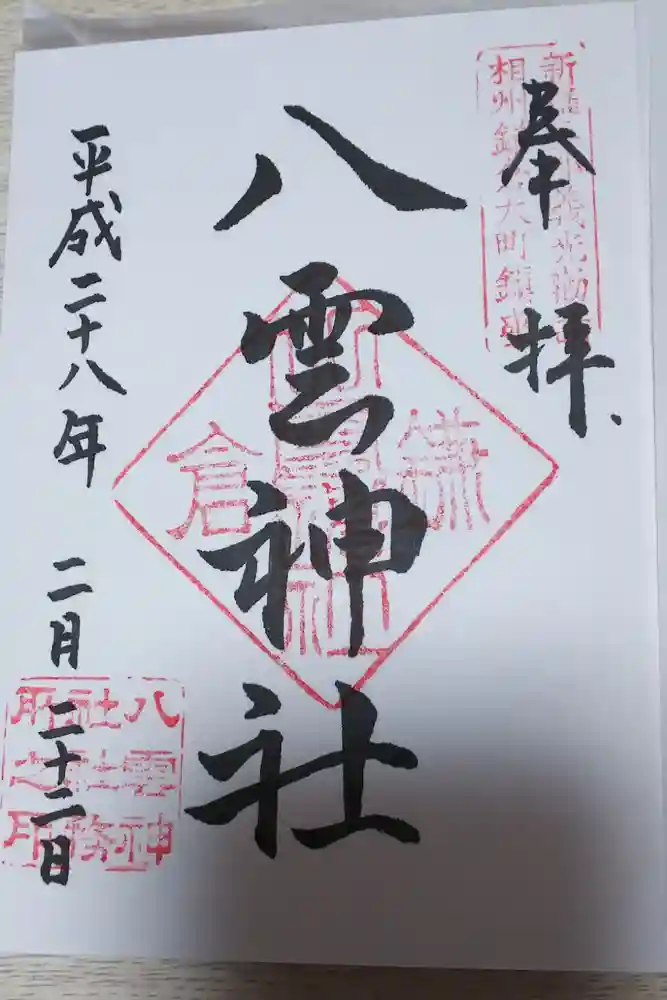 奉拝
相州鎌倉大町鎮座
八雲神社
鎌倉
平成二十八年 二月 二十二日
八雲神
社社務
所之印